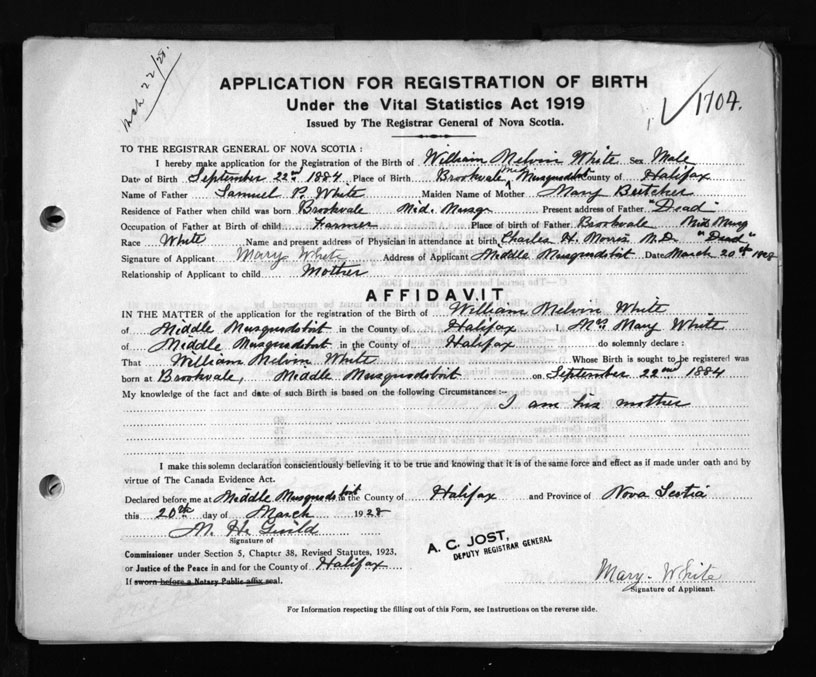 Mch 22/28.
APPLICATION FOR REGISTRATION OF BIRTH
1704.
Under the Vital Statistics Act 1919
Issued by The Registrar General of Nova Scotia.
TO THE REGISTRAR GENERAL OF NOVA SCOTIA :
I hereby make application for the Registration of the Birth of William Melvin White Sex Male
Date of Birth September 22nd 1884 Place of Birth Brookvale Musquodoboit County of Halifax
Name of Father Samuel P. White Maiden Name of Mother Mary Butcher
Residence of Father when child was born Brookvale Mid. Musqr Present address of Father "Dead"
Occupation of Father at Birth of child Farmer Place of birth of Father Brookvale Mid Musq
Race White Name and present address of Physician in attendance at birth Charles H. Morris M.D. "Dead"
Signature of Applicant Mary White Address of Applicant Middle Musquodoboit Date March 20th 1928
Relationship of Applicant to child Mother
AFFIDAVIT
IN THE MATTER of the application for the registration of the Birth of William Melvin White
of Middle Musquodoboit in the County of Halifax I Mrs Mary White
of Middle Musquodoboit in the County of Halifax do solemnly declare :
That William Melvin White Whose Birth is sought to be registered was
born at Brookvale, Middle Musquodoboit on September 22nd 1884
My knowledge of the fact and date of such Birth is based on the following Circumstances :-
I am his mother
I make this solemn declaration conscientiously believing it to be true and knowing that it is of the same force and effect as if made under oath and by
virtue of The Canada Evidence Act.
Declared before me at Middle Musquodoboit in the County of Halifax and Province of Nova Scotia
this 20th day of March 1928
M. H. Guild
Signature of
A. C. JOST,
DEPUTY REGISTRAR GENERAL
Commissioner under Section 5, Chapter 38, Revised Statutes, 1923.
or Justice of the Peace in and for the County of Halifax
Mary White
If sworn before a Notary Public affix seal.
Signature of Applicant.
For Information respecting the filling out of this Form, see Instructions on the reverse side.